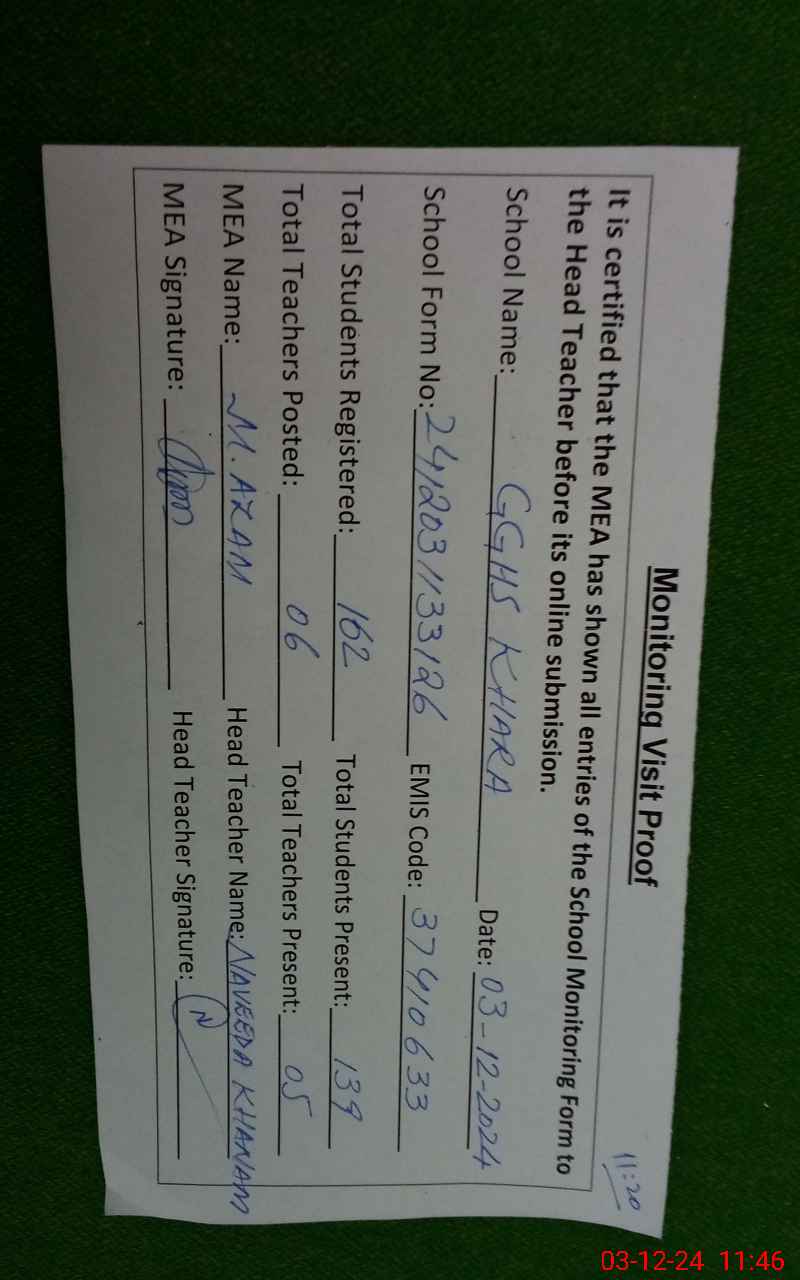 11:20
Monitoring Visit Proof
It is certified that the MEA has shown all entries of the School Monitoring Form to
the Head Teacher before its online submission.
School Name: GGHS KHARA Date: 03-12-2024
School Form No: 2412031133126 EMIS Code: 37410633
Total Students Registered: 162 Total Students Present: 139
Total Teachers Posted: 06 Total Teachers Present: 05
MEA Name: M. AZAM Head Teacher Name: NAVEEDA KHANAM
MEA Signature: Head Teacher Signature:
03-12-24 11:46